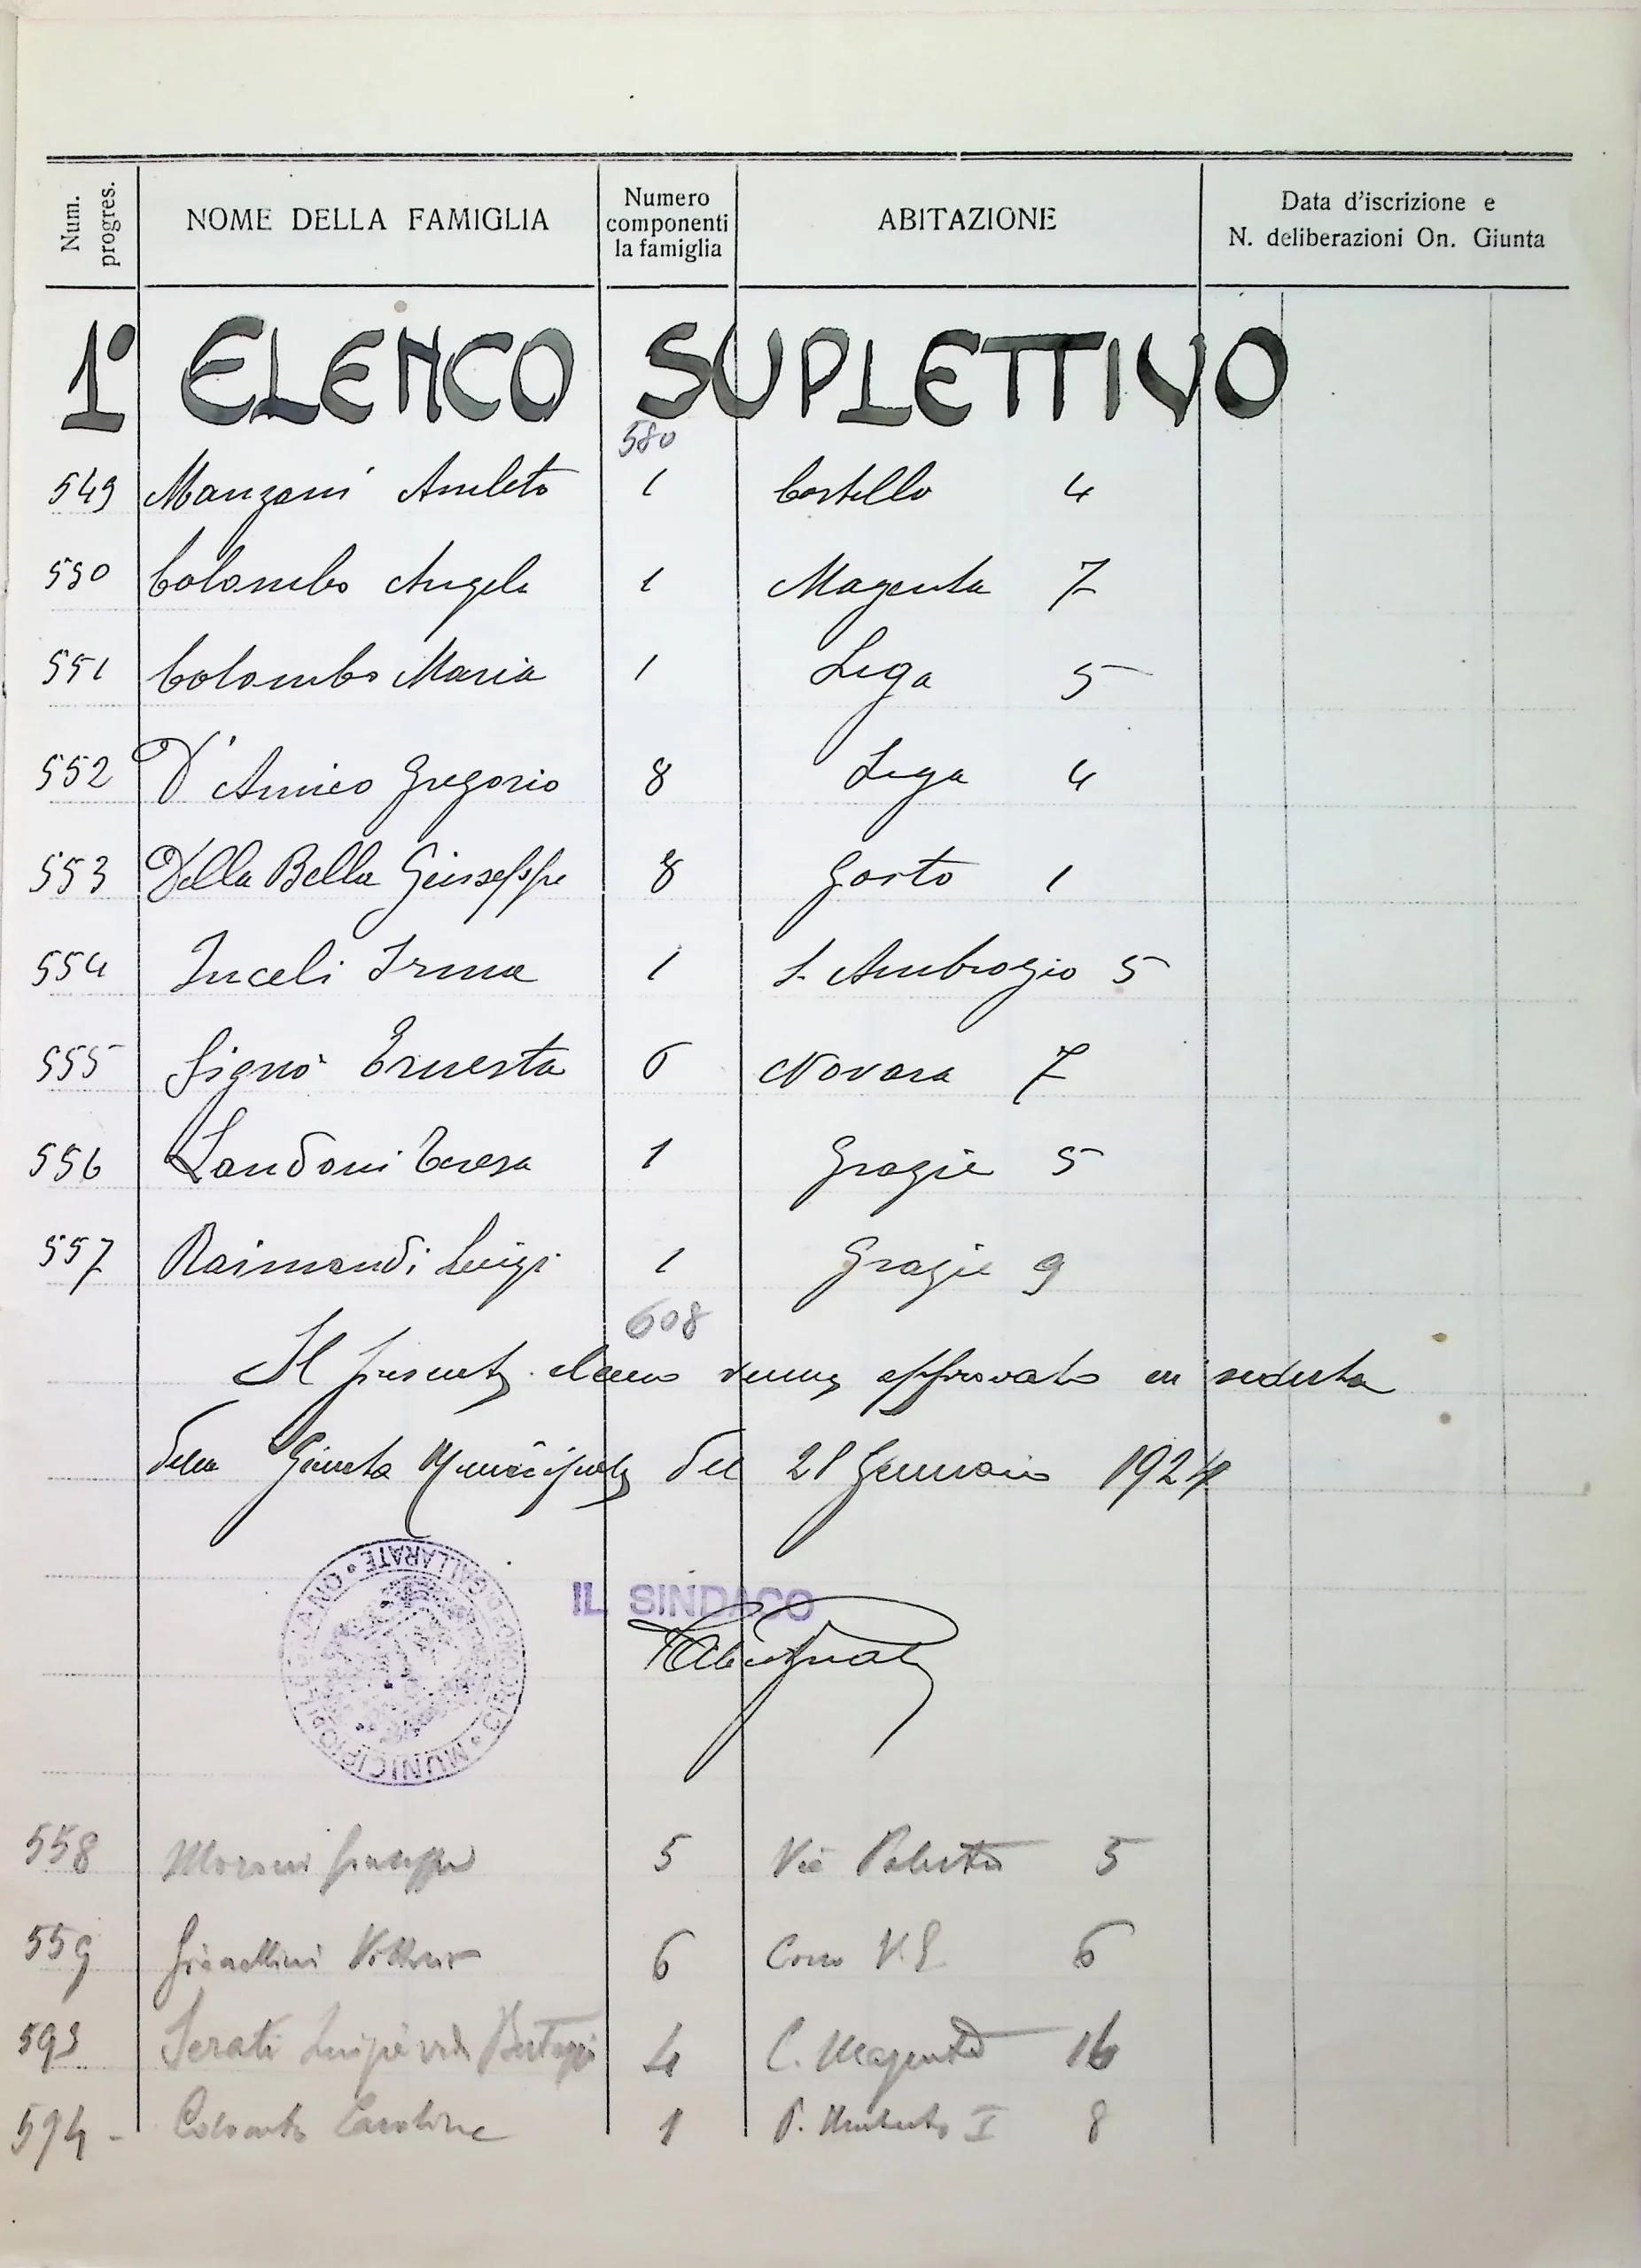 Num. progres.
NOME DELLA FAMIGLIA
Numero componenti la famiglia
ABITAZIONE
Data d'iscrizione e N. deliberazioni On. Giunta
1º ELENCO SUPLETTIVO
580
549 Manzoni Amleto 1 Costello 4
550 Colombo Angela 1 Magenta 7
551 Colombo Maria 1 Lega 5
552 D'Amico Gregorio 8 Lega 4
553 Della Bella Giuseppe 8 Gorto 1
554 Inceli Irma 1 S. Ambrogio 5
555 Signò Ernesta 6 Novara 7
556 Landoni Teresa 1 Grazie 5
557 Raimondi Luigi 1 Grazie 9
608
Il presente elenco venne approvato in seduta
della Giunta Municipale del 21 Gennaio 1924
MUNICIPIO DI GALLARATE
IL SINDACO
558 Moroni Giuseppe 5 Via 5
559 6 Corso V. E. 6
593 Serati Luigia ved. 4 C. Magenta 16
594 - Colombo Carolina 1 P. Umberto I 8